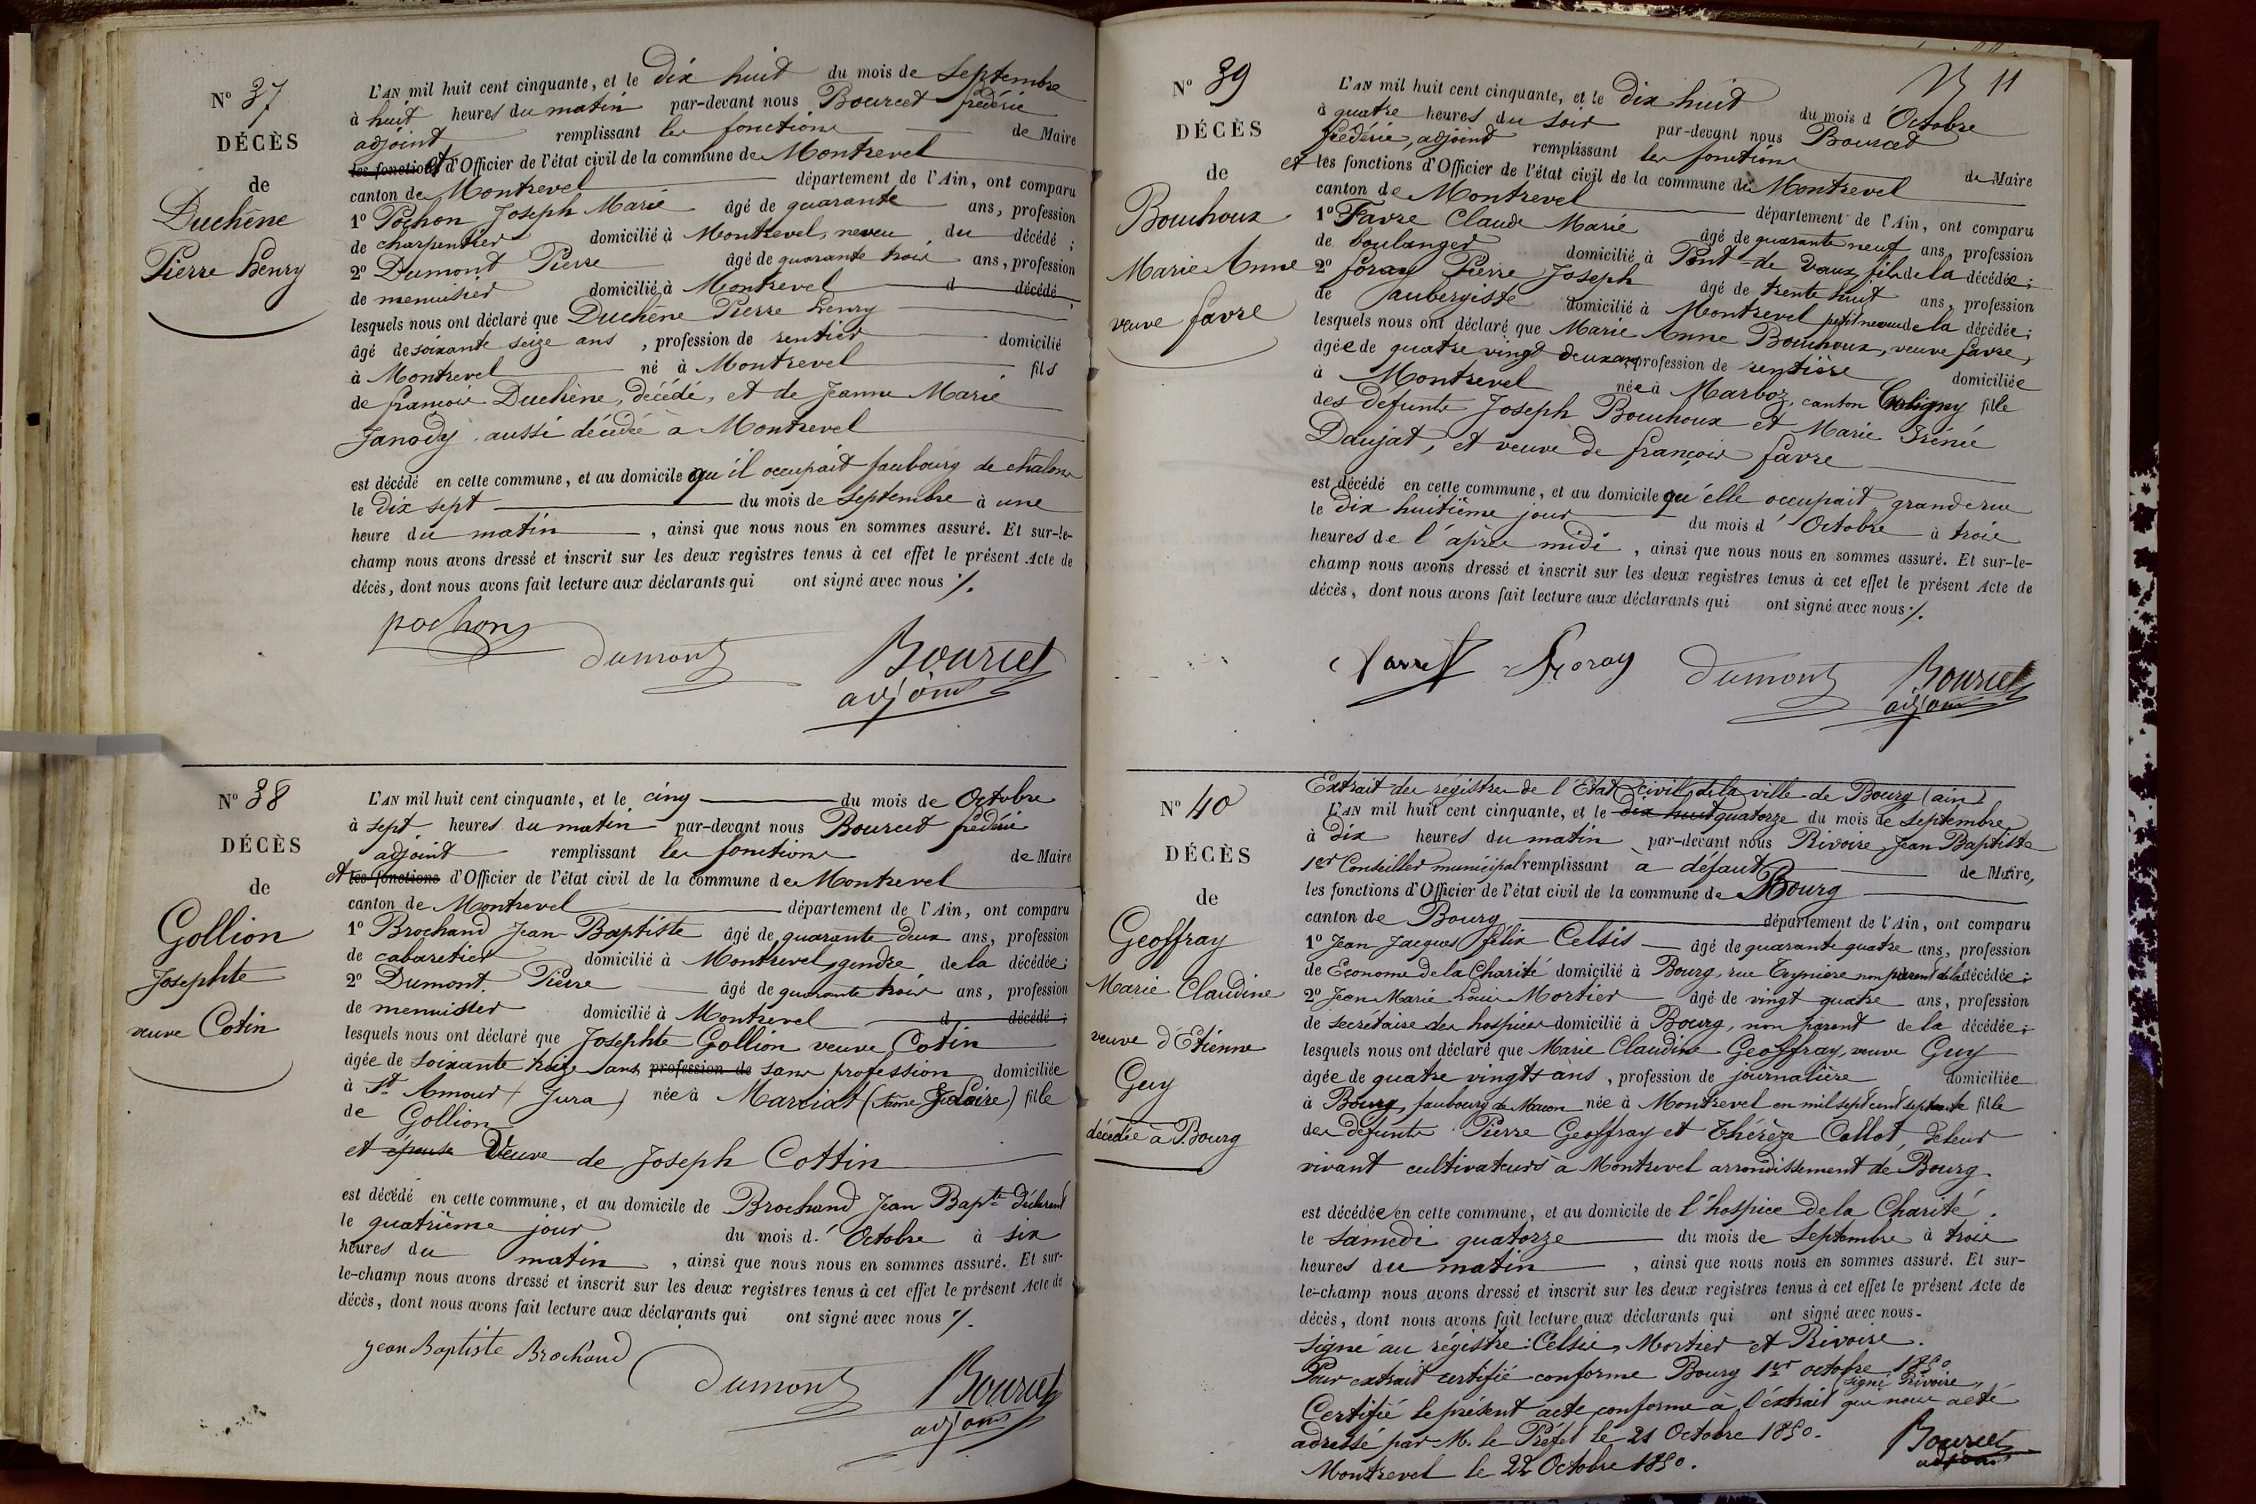 N° 37
DÉCÈS
de
Duchêne
Pierre Henry
L'AN mil huit cent cinquante, et le dix huit du mois de Septembre
à huit heures du matin par-devant nous Bourcet frédéric
adjoint remplissant les fonctions de Maire
les fonctions et d'Officier de l'état civil de la commune de Montrevel
canton de Montrevel département de l'Ain, ont comparu
1° Pochon Joseph Marie âgé de quarante ans, profession
de charpentier domicilié à Montrevel, neveu du décédé ;
2° Dumont Pierre âgé de quarante trois ans, profession
de menuisier domicilié à Montrevel d décédé ;
lesquels nous ont déclaré que Duchêne Pierre henry
âgé de soixante seize ans , profession de rentier domicilié
à Montrevel né à Montrevel fils
de françois Duchêne, décédé, et de Jeanne Marie
Janody aussi décédée à Montrevel
est décédé en cette commune, et au domicile qu'il occupait faubourg de chalons
le dix sept du mois de septembre à une
heure du matin , ainsi que nous nous en sommes assuré. Et sur-le-
champ nous avons dressé et inscrit sur les deux registres tenus à cet effet le présent Acte de
décès, dont nous avons fait lecture aux déclarants qui ont signé avec nous ./.
pochon
dumont
Bourcet
adjoint
N° 38
DÉCÈS
de
Gollion
Josephte
veuve Cotin
L'AN mil huit cent cinquante, et le cinq du mois de Octobre
à sept heures du matin par-devant nous Bourcet frédéric
adjoint remplissant les fonctions de Maire
et les fonctions d'Officier de l'état civil de la commune de Montrevel
canton de Montrevel département de l'Ain, ont comparu
1° Brochand Jean Baptiste âgé de quarante deux ans, profession
de cabaretier domicilié à Montrevel, gendre de la décédée ;
2° Dumont Pierre âgé de quarante trois ans, profession
de menuisier domicilié à Montrevel d décédé ;
lesquels nous ont déclaré que Josephte Gollion veuve Cotin
âgée de soixante treize ans profession de sans profession domiciliée
à St Amour (Jura) née à Marciat fille
de Gollion
et épouse Veuve de Joseph Cottin
est décédé en cette commune, et au domicile de Brochand Jean Bapte déclarent
le quatrième jour du mois d' Octobre à six
heures du matin , ainsi que nous nous en sommes assuré. Et sur-
le-champ nous avons dressé et inscrit sur les deux registres tenus à cet effet le présent Acte de
décès, dont nous avons fait lecture aux déclarants qui ont signé avec nous ./.
jean Baptiste Brochand
dumont
Bourcet
adjoint
11
N° 39
DÉCÈS
de
Bouchoux
Marie Anne
veuve favre
L'AN mil huit cent cinquante, et le dix huit du mois d' Octobre
à quatre heures du soir par-devant nous Bourcet
frédéric, adjoint remplissant les fonctions de Maire
et les fonctions d'Officier de l'état civil de la commune de Montrevel
canton de Montrevel département de l'Ain, ont comparu
1° Favre Claude Marie âgé de quarante neuf ans, profession
de boulanger domicilié à Pont-de Vaux, fils de la décédée ;
2° foray Pierre Joseph âgé de trente huit ans, profession
de aubergiste domicilié à Montrevel petit neveu de la décédée ;
lesquels nous ont déclaré que Marie Anne Bouchoux, veuve favre,
âgée de quatre vingt deux ans, profession de rentière domiciliée
à Montrevel née à Marboz, canton Coligny fille
des defunts Joseph Bouchoux et Marie Irénée
Daujat, et veuve de françois favre
est décédé en cette commune, et au domicile qu'elle occupait grande rue
le dix huitième jour du mois d' Octobre à trois
heures de l'après midi , ainsi que nous nous en sommes assuré. Et sur-le-
champ nous avons dressé et inscrit sur les deux registres tenus à cet effet le présent Acte de
décès, dont nous avons fait lecture aux déclarants qui ont signé avec nous ./.
favre foray dumont Bourcet
adjoint
N° 40
DÉCÈS
de
Geoffray
Marie Claudine
veuve d'Etienne
Guy
décédée à Bourg
Extrait des régistres de l'État civil de la ville de Bourg (ain)
L'AN mil huit cent cinquante, et le dix huit quatorze du mois de septembre
à dix heures du matin par-devant nous Rivoire, Jean Baptiste
1er Conseiller municipal remplissant à défaut de Maire,
les fonctions d'Officier de l'état civil de la commune de Bourg
canton de Bourg département de l'Ain, ont comparu
1° Jean Jacques félix Celsis âgé de quarante quatre ans, profession
de Econome de la Charité domicilié à Bourg, rue non parent de la décédée ;
2° Jean Marie Louis Mortier âgé de vingt quatre ans, profession
de secrétaire des hospices domicilié à Bourg, non parent de la décédée ;
lesquels nous ont déclaré que Marie Claudine Geoffray, veuve Guy
âgée de quatre vingts ans , profession de journalière domiciliée
à Bourg, faubourg de Macon née à Montrevel en mil sept cent septante fille
des defunts Pierre Geoffray et Thérèze Collot, de leur
vivant cultivateurs à Montrevel arrondissement de Bourg
est décédée en cette commune, et au domicile de l'hospice de la Charité.
le samedi quatorze du mois de Septembre à trois
heures du matin , ainsi que nous nous en sommes assuré. Et sur-
le-champ nous avons dressé et inscrit sur les deux registres tenus à cet effet le présent Acte de
décès, dont nous avons fait lecture aux déclarants qui ont signé avec nous.
Signé au régistre : Celsis, Mortier et Rivoire.
Pour extrait certifié conforme Bourg 1er octobre 1850
signé Rivoire,
Certifié le présent acte conforme à l'extrait qui nous a été
adressé par M. le Préfet le 21 Octobre 1850.
Montrevel le 22 Octobre 1850.
Bourcet
adjoint